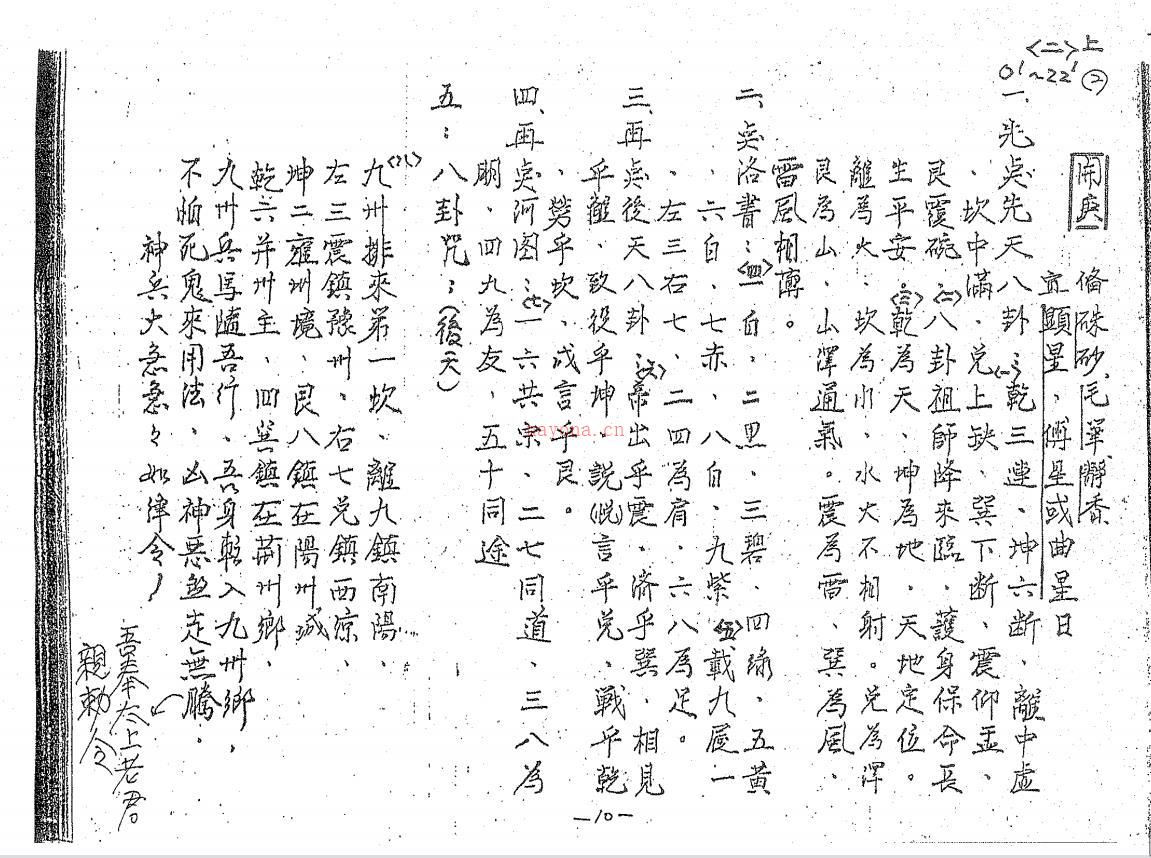 <二>上
0'~22' ②
開典
備硃砂、毛筆、瞬香
宜顯星,傅星或曲星日
一、先点先天八卦:<一>乾三連、坤六断、離中虚
、坎中滿、兑上缺、巽下断、震仰盂、
艮覆碗、<二>八卦祖師降來臨、護身保命長
生平安、<三>乾為天、坤為地、天地定位。
離為火、坎為水、水火不相射。兑為澤
艮為山、山澤通氣。震為雷、巽為風、
雷風相薄。
二、点洛書:<四>一白、二黑、三碧、四綠、五黃
、六白、七赤、八白、九紫<五>載九履一
、左三右七、二四為肩、六八為足。
三、再点後天八卦:<六>帝出乎震、濟乎巽、相見
乎離、致役乎坤、說(悅)言乎兑、戰乎乾
、勞乎坎、成言乎艮。
四、再点河图:<七>一六共宗、二七同道、三八為
朋、四九為友、五十同途
五:八卦咒:(後天)
<八>九州排來第一坎、離九鎮南陽、
左三震鎮豫州、右七兑鎮西凉、
坤二雍州境、艮八鎮在陽州城
乾六并州主、四巽鎮在荊州鄉、
九州兵馬隨吾行、吾身転入九州鄉,
不怕死鬼來用法、凶神惡煞走無騰。
神兵火急急々如律令!
吾奉太上老君
親勅令
—10—
nayona.cn